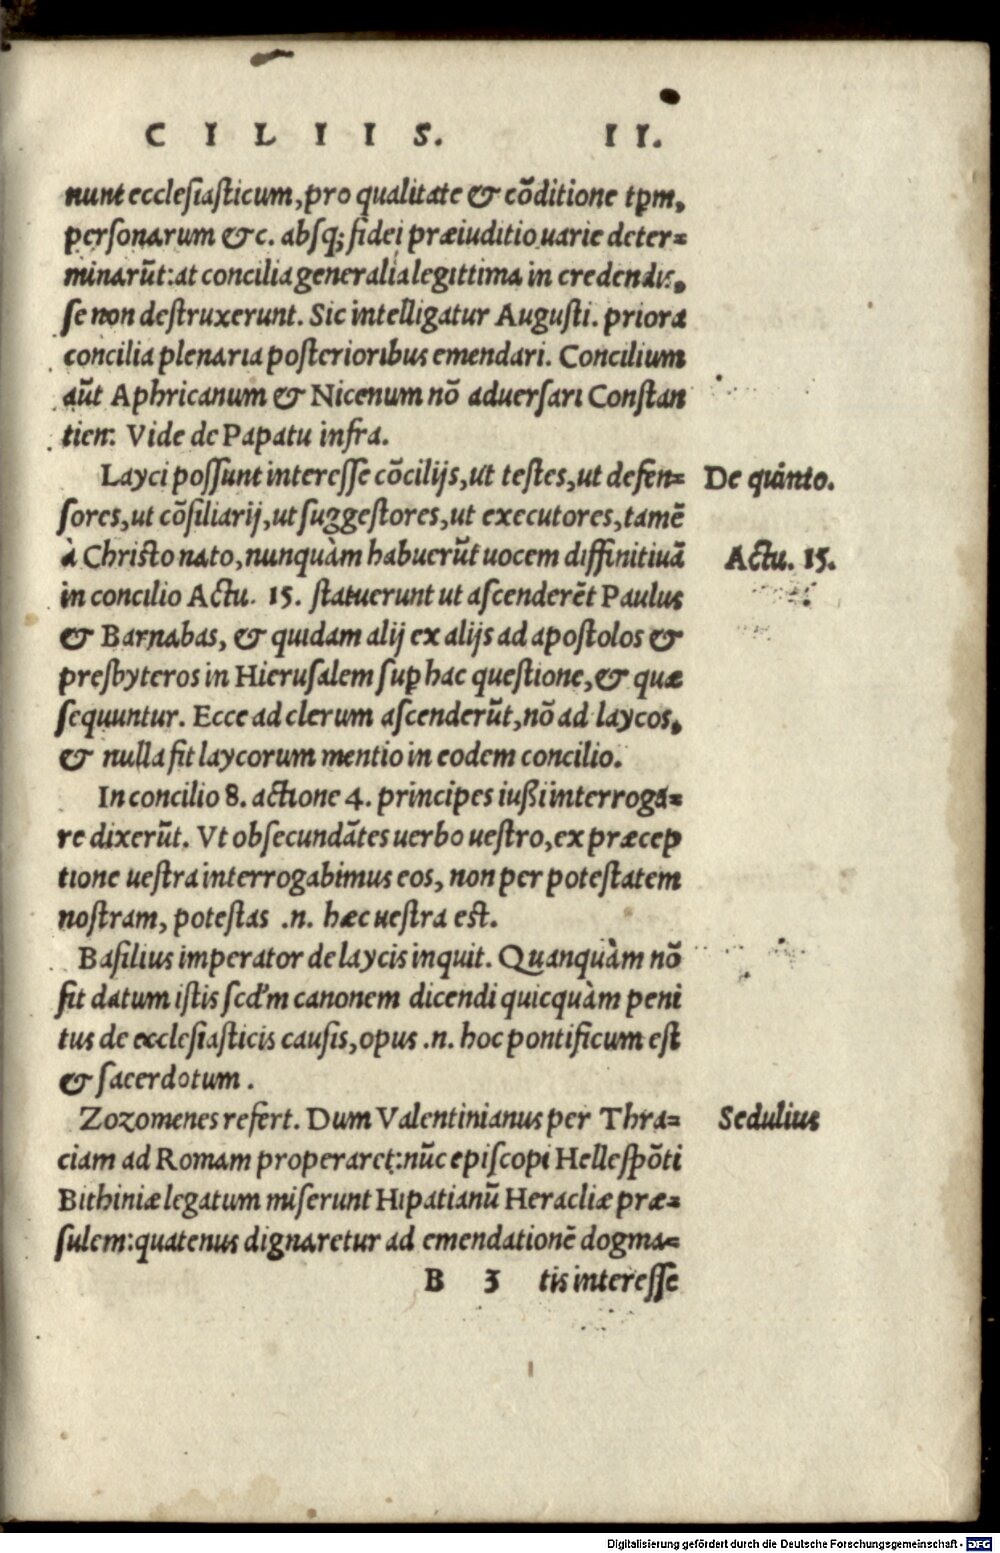 CILIIS. II.
nunt ecclesiasticum, pro qualitate & cōditione tpm,
personarum &c. absq; fidei præiuditio uarie deter=
minarūt: at concilia generalia legittima in credendis,
se non destruxerunt. Sic intelligatur Augusti. priora
concilia plenaria posterioribus emendari. Concilium
aūt Aphricanum & Nicenum nō aduersari Constan
tien: Vide de Papatu infra.
Layci possunt interesse cōcilijs, ut testes, ut defen= De quinto.
sores, ut cōsiliarij, ut suggestores, ut executores, tamē
à Christo nato, nunquàm habuerūt uocem diffinitiuā Actu. 15.
in concilio Actu. 15. statuerunt ut ascenderēt Paulus
& Barnabas, & quidam alij ex alijs ad apostolos &
presbyteros in Hierusalem sup hac questione, & quæ
sequuntur. Ecce ad clerum ascenderūt, nō ad laycos,
& nulla fit laycorum mentio in eodem concilio.
In concilio 8. actione 4. principes iußi interroga=
re dixerūt. Vt obsecundātes uerbo uestro, ex præcep
tione uestra interrogabimus eos, non per potestatem
nostram, potestas .n. hæc uestra est.
Basilius imperator de laycis inquit. Quanquàm nō
fit datum istis scd'm canonem dicendi quicquàm peni
tus de ecclesiasticis causis, opus .n. hoc pontificum est
& sacerdotum.
Zozomenes refert. Dum Valentinianus per Thra= Sedulius
ciam ad Romam properaret: nūc episcopi Hellespōti
Bithiniæ legatum miserunt Hipatianū Heracliæ præ=
sulem: quatenus dignaretur ad emendationē dogma=
B 3 tis interesse
Digitalisierung gefördert durch die Deutsche Forschungsgemeinschaft - DFG